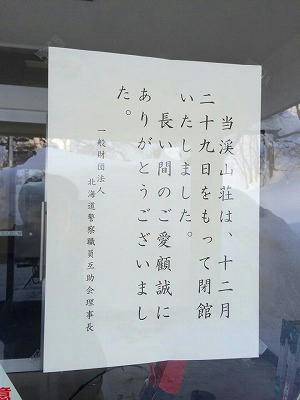 当渓山荘は、十二月
二十九日をもって閉館
いたしました。
長い間のご愛顧誠に
ありがとうございまし
た。
一般財団法人
北海道警察職員互助会理事長